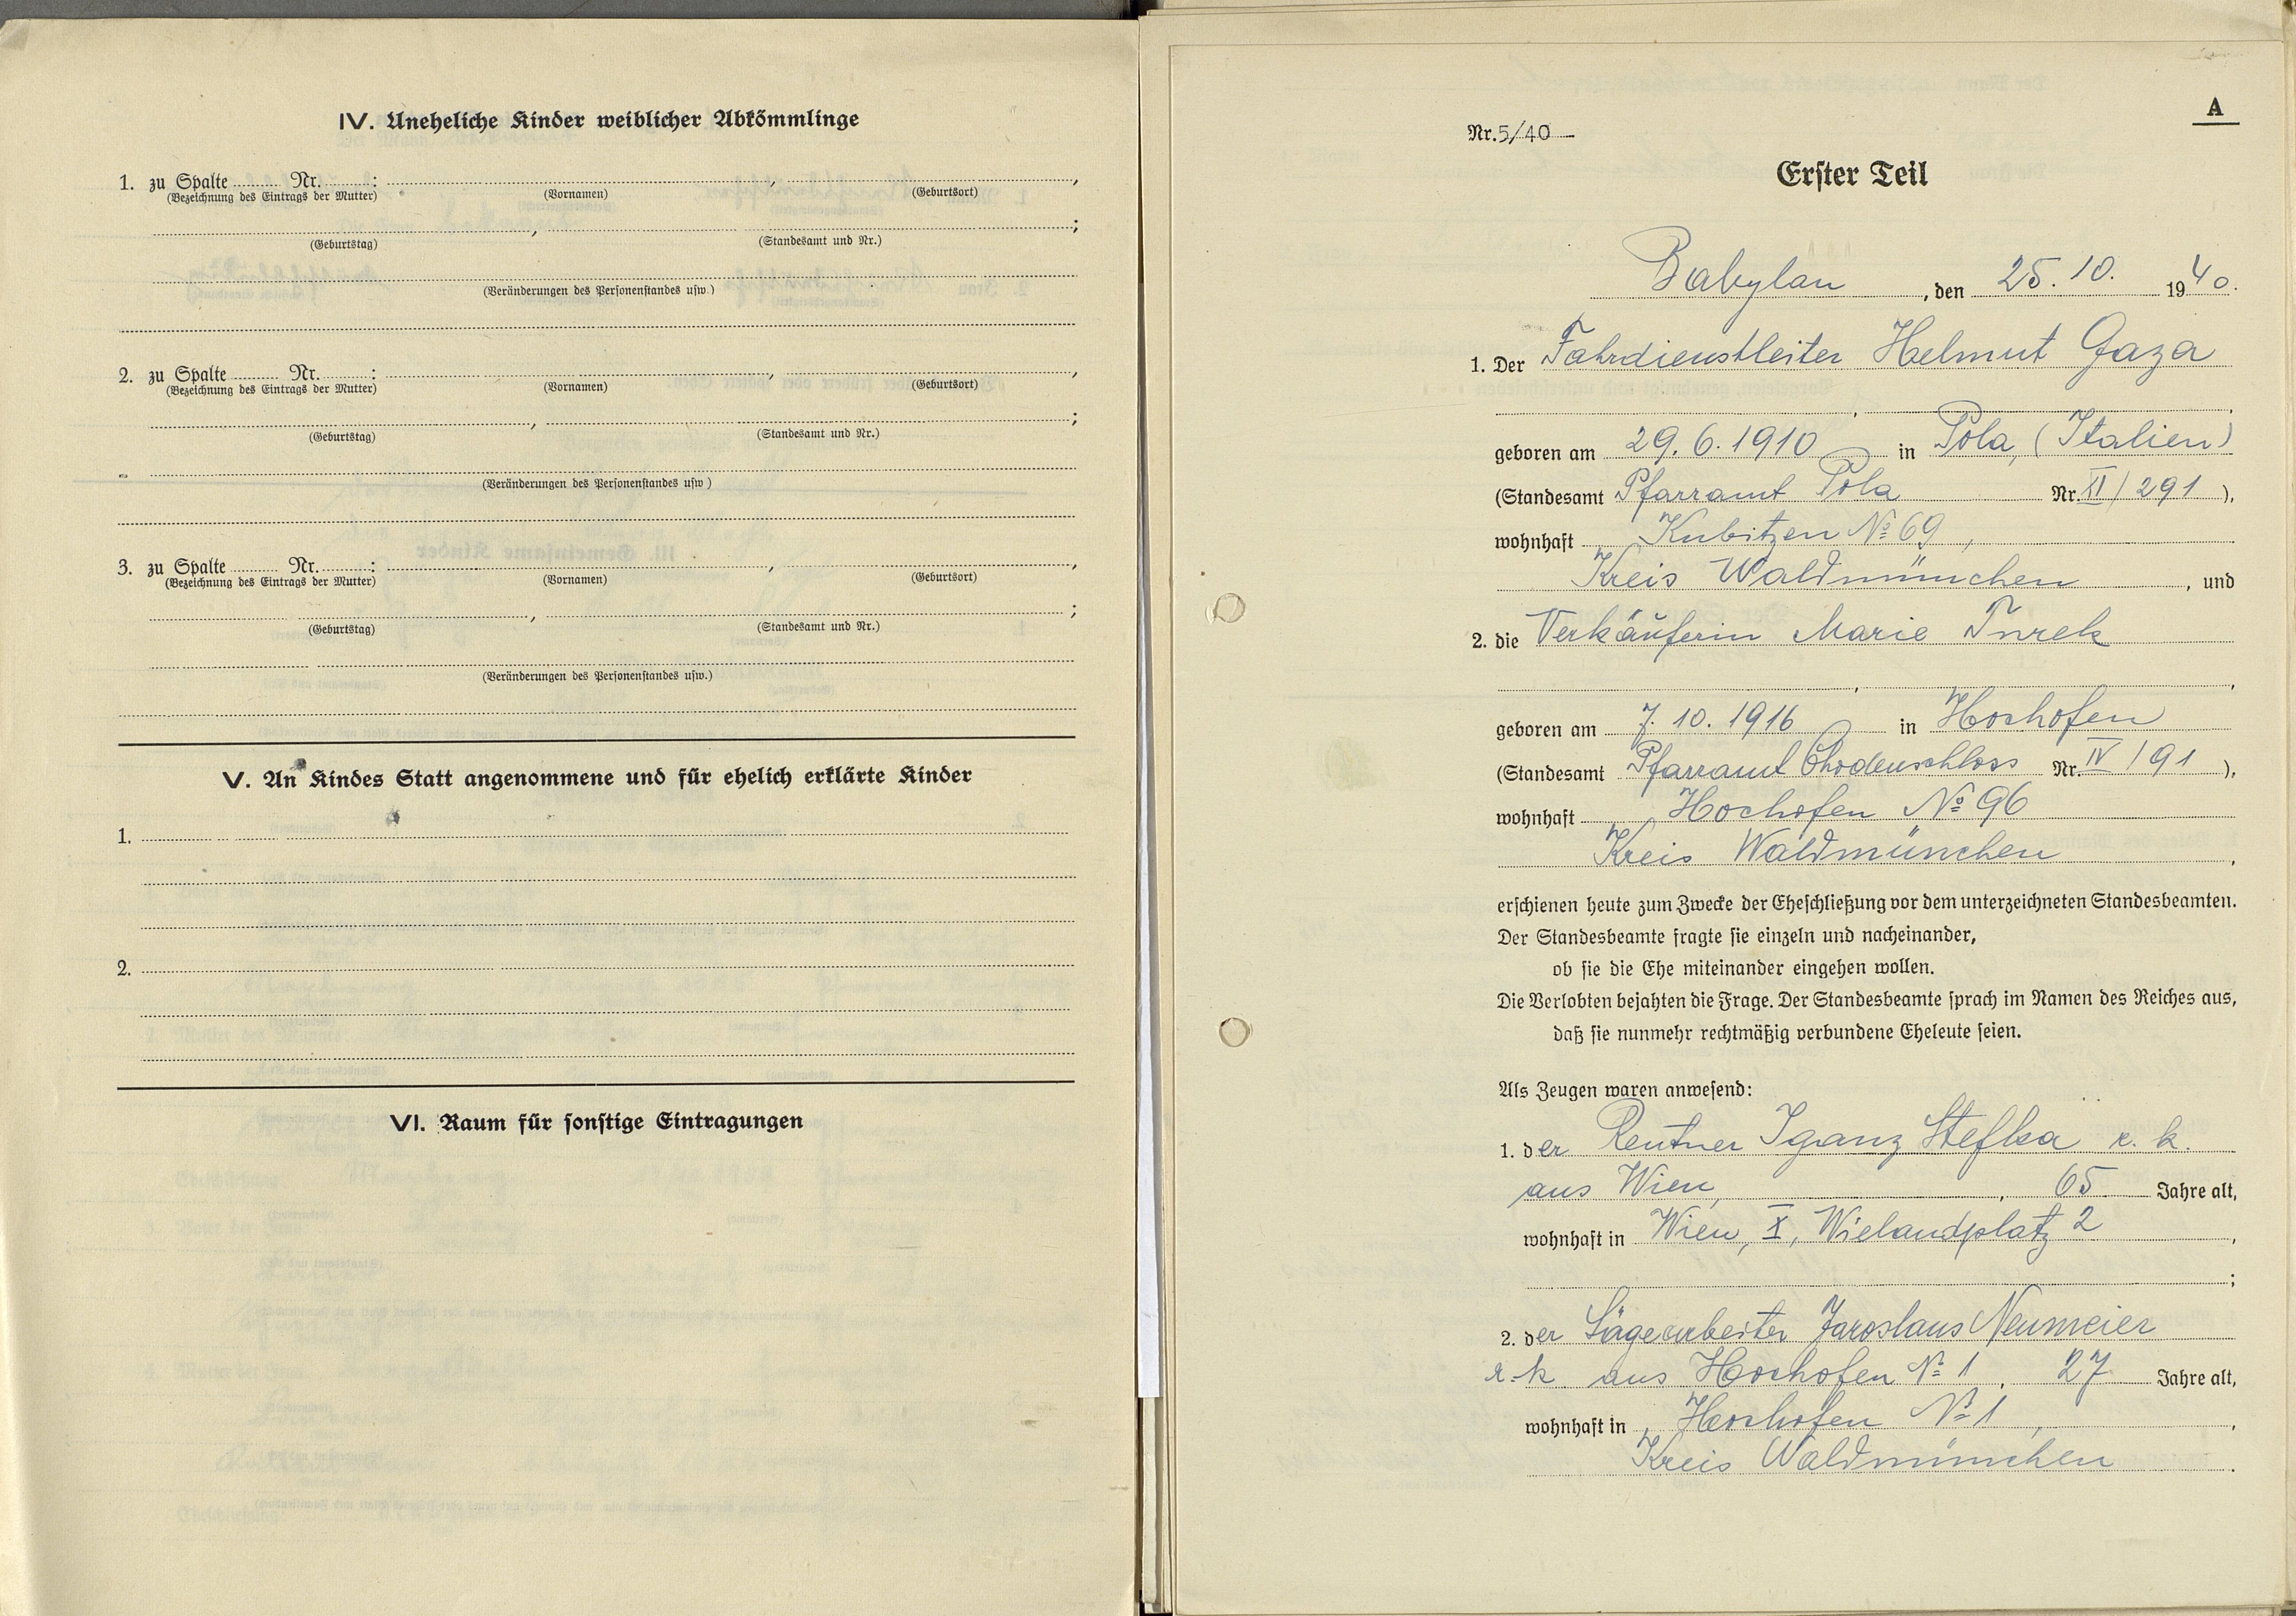 IV. Uneheliche Kinder weiblicher Abkömmlinge
1. zu Spalte ........ Nr. ........: ........, ........,
(Bezeichnung des Eintrags der Mutter) (Vornamen) (Geburtsort)
........, ........;
(Geburtstag) (Standesamt und Nr.)
(Veränderungen des Personenstandes usw.)
2. zu Spalte ........ Nr. ........: ........, ........,
(Bezeichnung des Eintrags der Mutter) (Vornamen) (Geburtsort)
........, ........;
(Geburtstag) (Standesamt und Nr.)
(Veränderungen des Personenstandes usw)
3. zu Spalte ........ Nr. ........: ........, ........,
(Bezeichnung des Eintrags der Mutter) (Vornamen) (Geburtsort)
........, ........;
(Geburtstag) (Standesamt und Nr.)
(Veränderungen des Personenstandes usw.)
V. An Kindes Statt angenommene und für ehelich erklärte Kinder
1.
2.
VI. Raum für sonstige Eintragungen
A
Nr. 5/40
Erster Teil
Babylon, den 25. 10. 1940.
1. Der Fahrdienstleiter Helmut Gaza
geboren am 29. 6. 1910 in Pola, (Italien)
(Standesamt Pfarramt Pola Nr. XI / 291),
wohnhaft Kubitzen № 69,
Kreis Waldmünchen, und
2. die Verkäuferin Marie Turek
geboren am 7. 10. 1916 in Hochofen
(Standesamt Pfarramt Chodenschloss Nr. IV / 91),
wohnhaft Hochofen № 96
Kreis Waldmünchen,
erschienen heute zum Zwecke der Eheschließung vor dem unterzeichneten Standesbeamten.
Der Standesbeamte fragte sie einzeln und nacheinander,
ob sie die Ehe miteinander eingehen wollen.
Die Verlobten bejahten die Frage. Der Standesbeamte sprach im Namen des Reiches aus,
daß sie nunmehr rechtmäßig verbundene Eheleute seien.
Als Zeugen waren anwesend:
1. der Rentner Iganz Stefka r. k.
aus Wien, 65 Jahre alt,
wohnhaft in Wien, X, Wielandplatz 2,
;
2. der Sägearbeiter Jaroslaus Neumeier
r. k. aus Hochofen № 1, 27 Jahre alt,
wohnhaft in Hochofen № 1,
Kreis Waldmünchen.